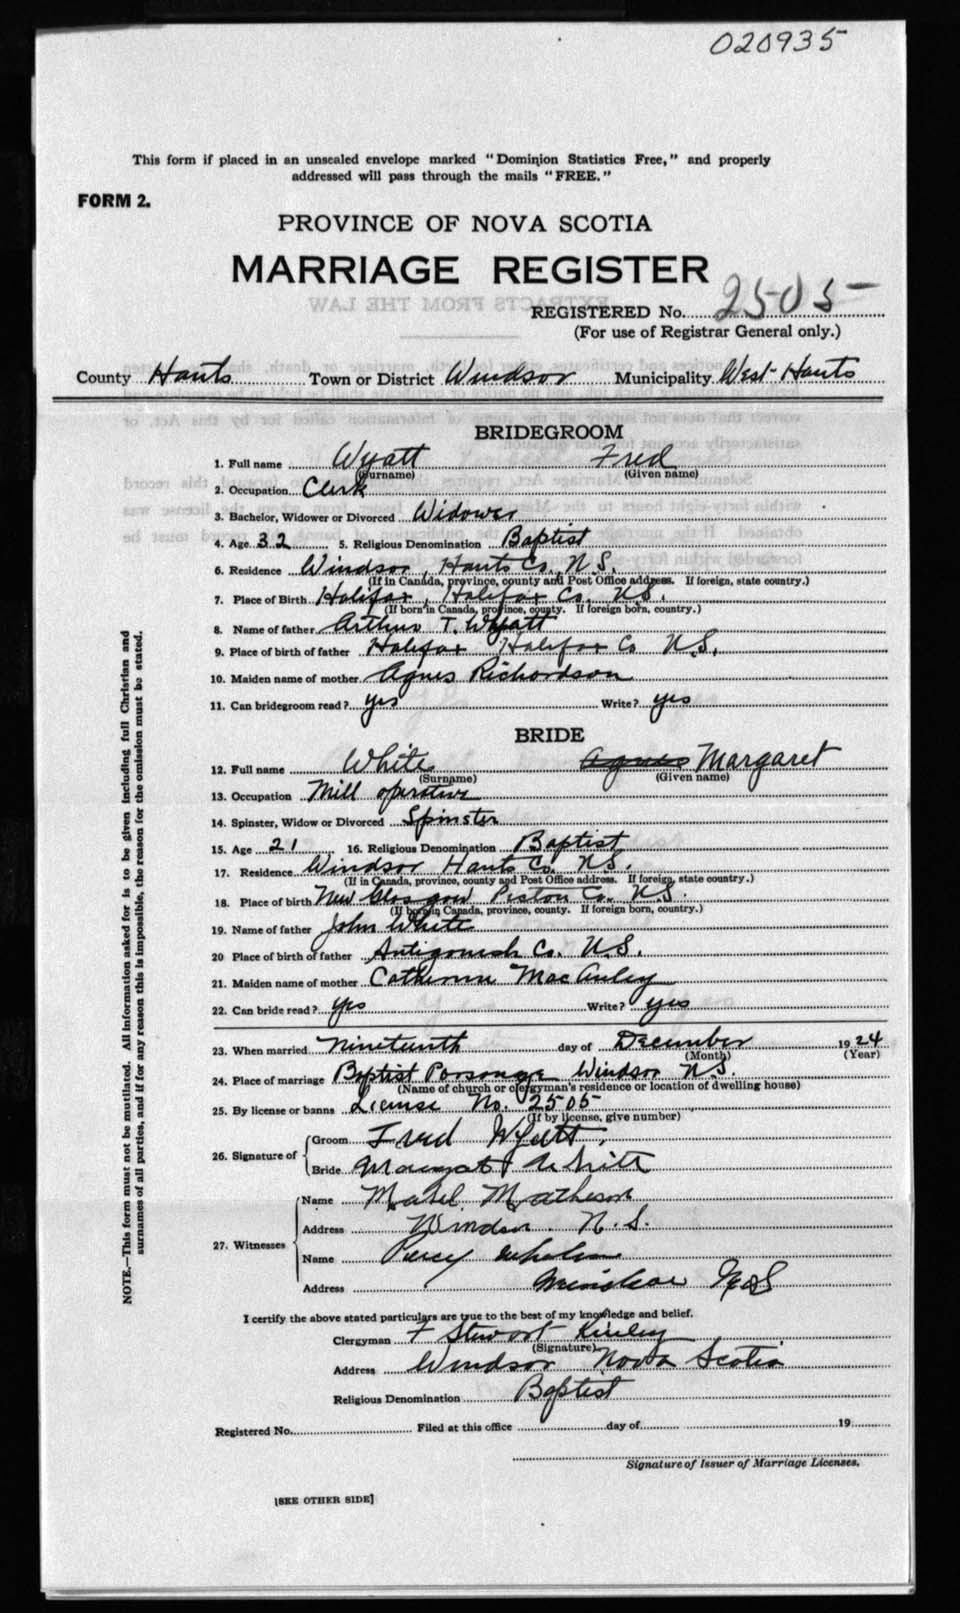 020935
This form if placed in an unsealed envelope marked "Dominion Statistics Free," and properly
addressed will pass through the mails "FREE."
FORM 2.
PROVINCE OF NOVA SCOTIA
MARRIAGE REGISTER
REGISTERED No. 2505
(For use of Registrar General only.)
County Hants Town or District Windsor Municipality West Hants
BRIDEGROOM
1. Full name Wyatt Fred
(Surname) (Given name)
2. Occupation Clerk
3. Bachelor, Widower or Divorced Widower
4. Age 32 5. Religious Denomination Baptist
6. Residence Windsor, Hants Co. N.S.
(If in Canada, province, county and Post Office address. If foreign, state country.)
7. Place of Birth Halifax, Halifax Co. N.S.
(If born in Canada, province, county. If foreign born, country.)
8. Name of father Arthur T. Wyatt
9. Place of birth of father Halifax Halifax Co N.S.
10. Maiden name of mother Agnes Richardson
11. Can bridegroom read? yes Write? yes
BRIDE
12. Full name White Agnes Margaret
(Surname) (Given name)
13. Occupation Mill operative
14. Spinster, Widow or Divorced Spinster
15. Age 21 16. Religious Denomination Baptist
17. Residence Windsor Hants Co. N.S.
(If in Canada, province, county and Post Office address. If foreign, state country.)
18. Place of birth New Glasgow Pictou Co. N.S.
(If born in Canada, province, county. If foreign born, country.)
19. Name of father John White
20 Place of birth of father Antigonish Co. N.S.
21. Maiden name of mother Catherine MacAuley
22. Can bride read? yes Write? yes
23. When married Nineteenth day of December 1924
(Month) (Year)
24. Place of marriage Baptist Parsonage Windsor N.S.
(Name of church or clergyman's residence or location of dwelling house)
25. By license or banns License No. 2505
(If by license, give number)
26. Signature of Groom Fred Wyatt
Bride Margaret White
27. Witnesses Name Mabel Matheson
Address Windsor N.S.
Name Percy
Address N.S
I certify the above stated particulars are true to the best of my knowledge and belief.
Clergyman F Stewart Kinley
(Signature)
Address Windsor Nova Scotia
Religious Denomination Baptist
Registered No. Filed at this office day of 19
Signature of Issuer of Marriage Licenses.
[SEE OTHER SIDE]
NOTE.—This form must not be mutilated. All information asked for is to be given including full Christian and
surnames of all parties, and if for any reason this is impossible, the reason for the omission must be stated.